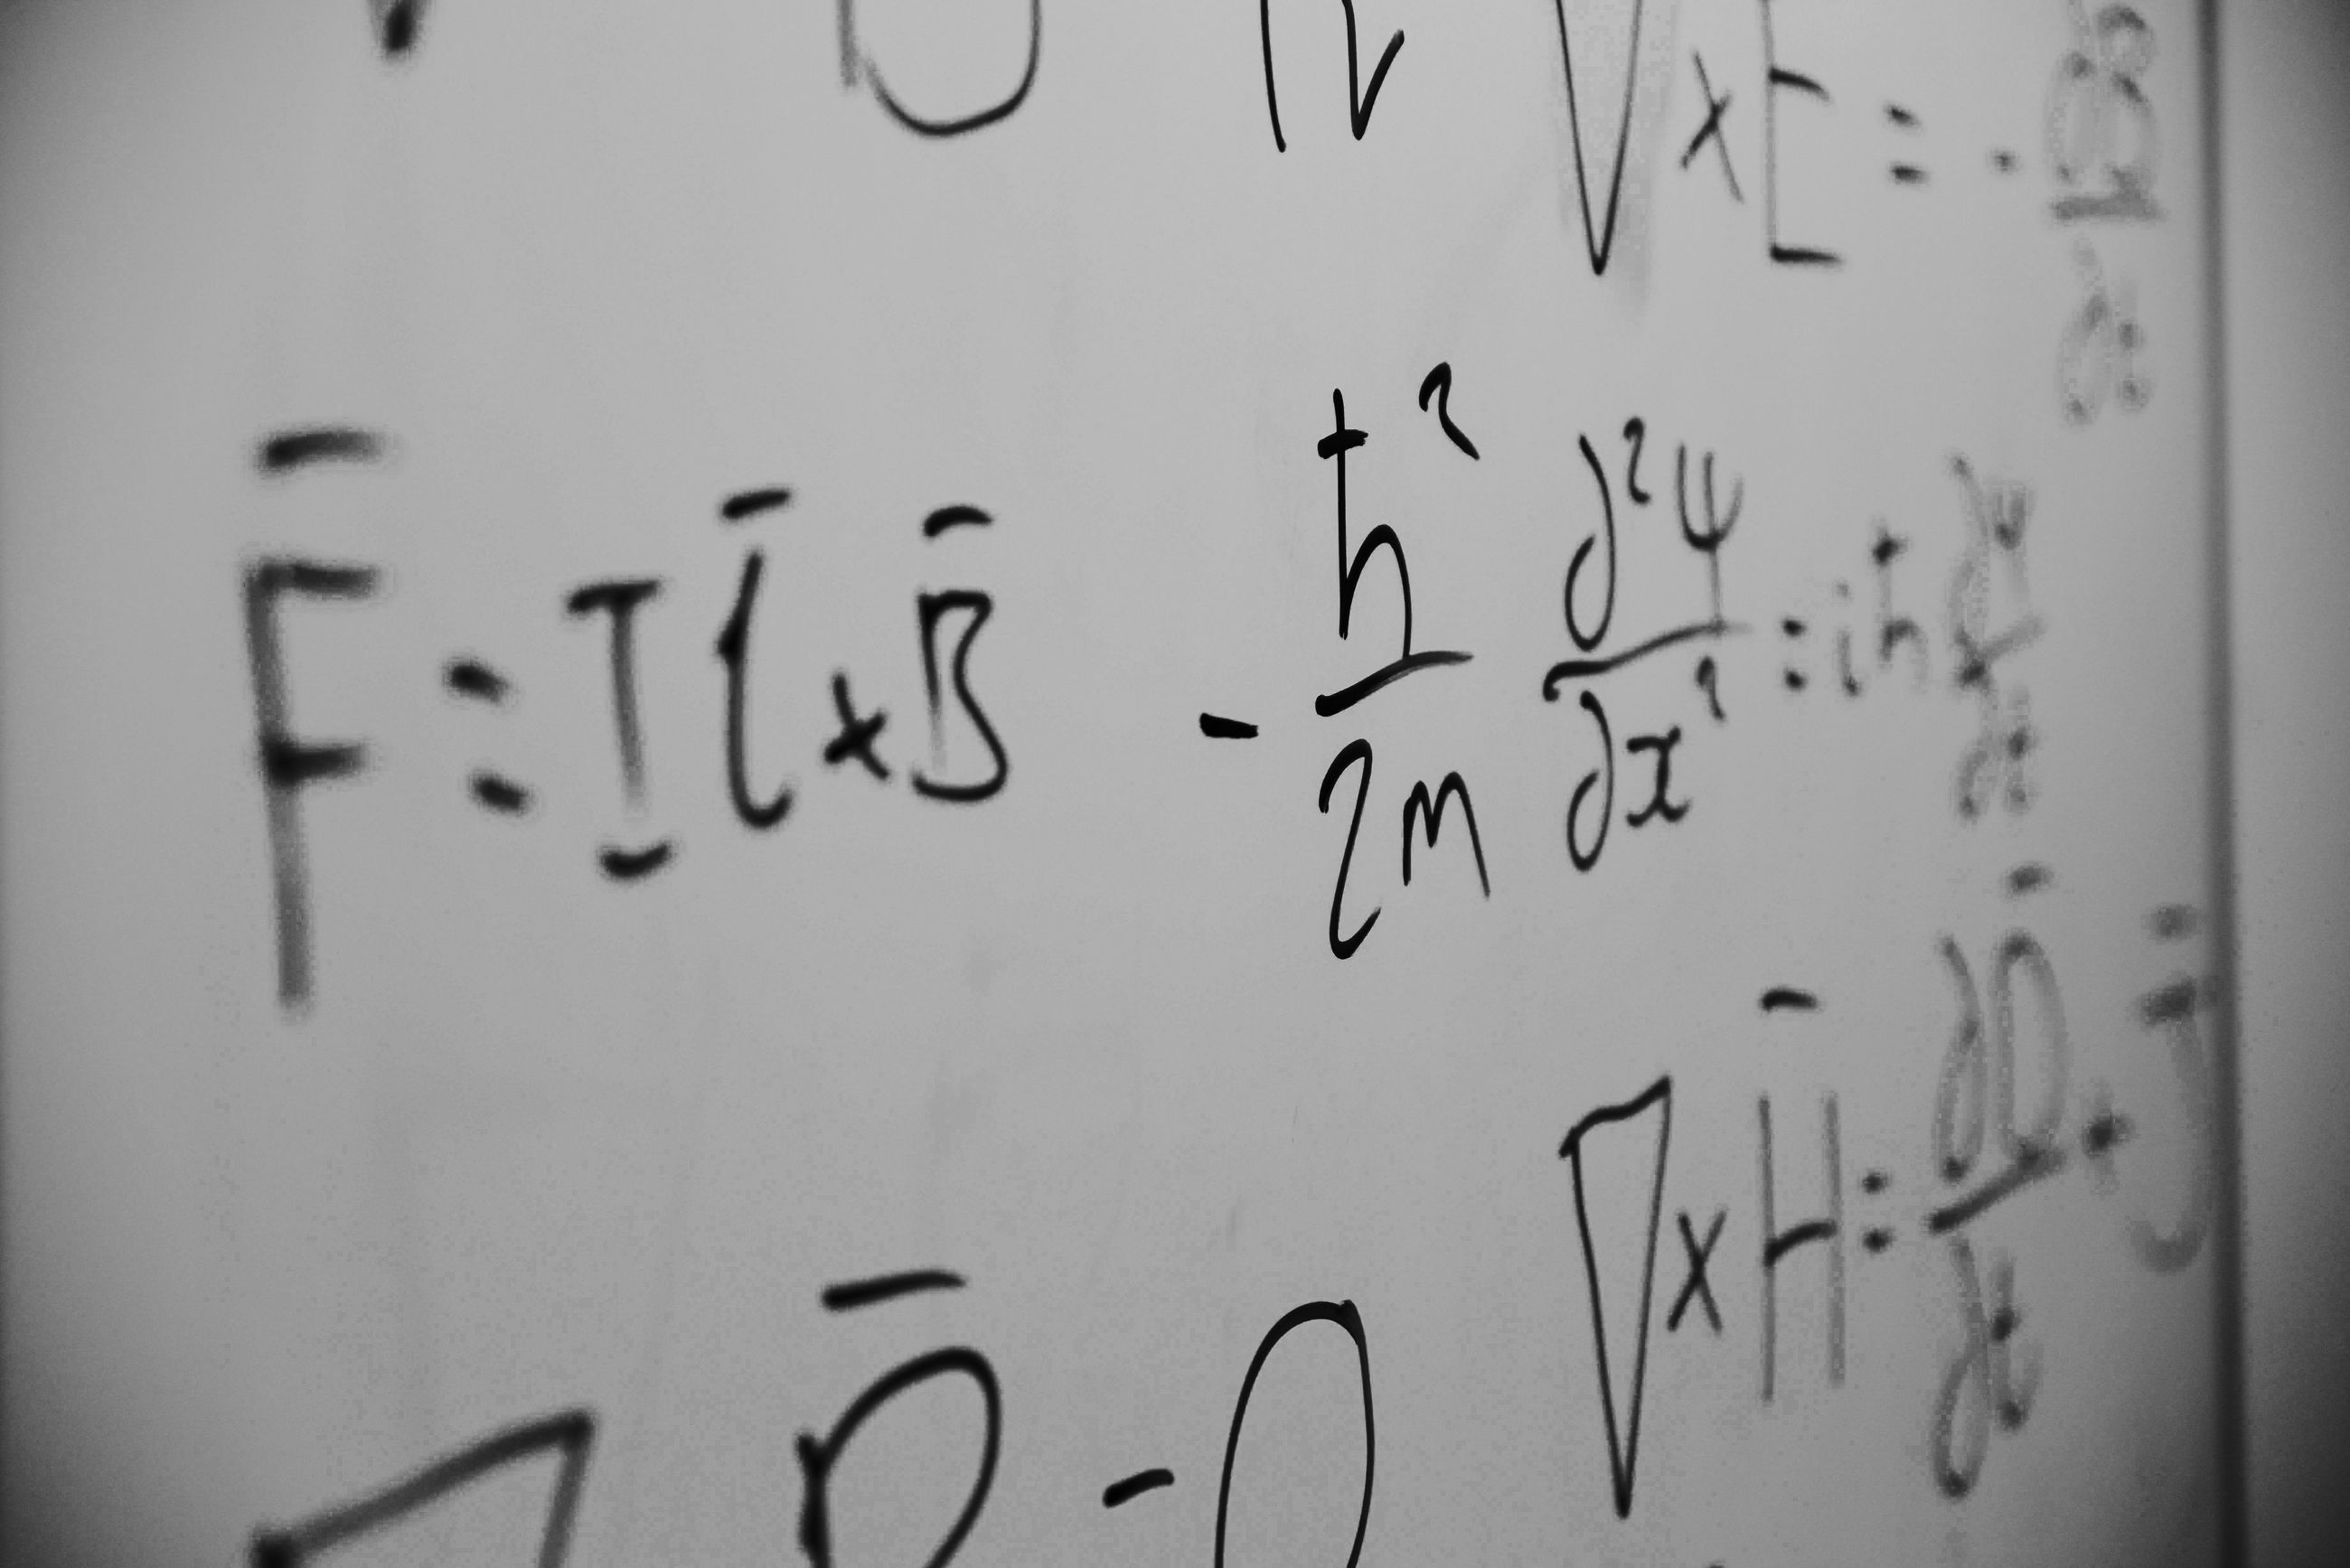 ∇×E = -∂B/∂t
F̄ = I l̄ × B̄
-ħ²/2m ∂²ψ/∂x² = iħ ∂ψ/∂t
∇×H̄ = ∂D̄/∂t + J̄